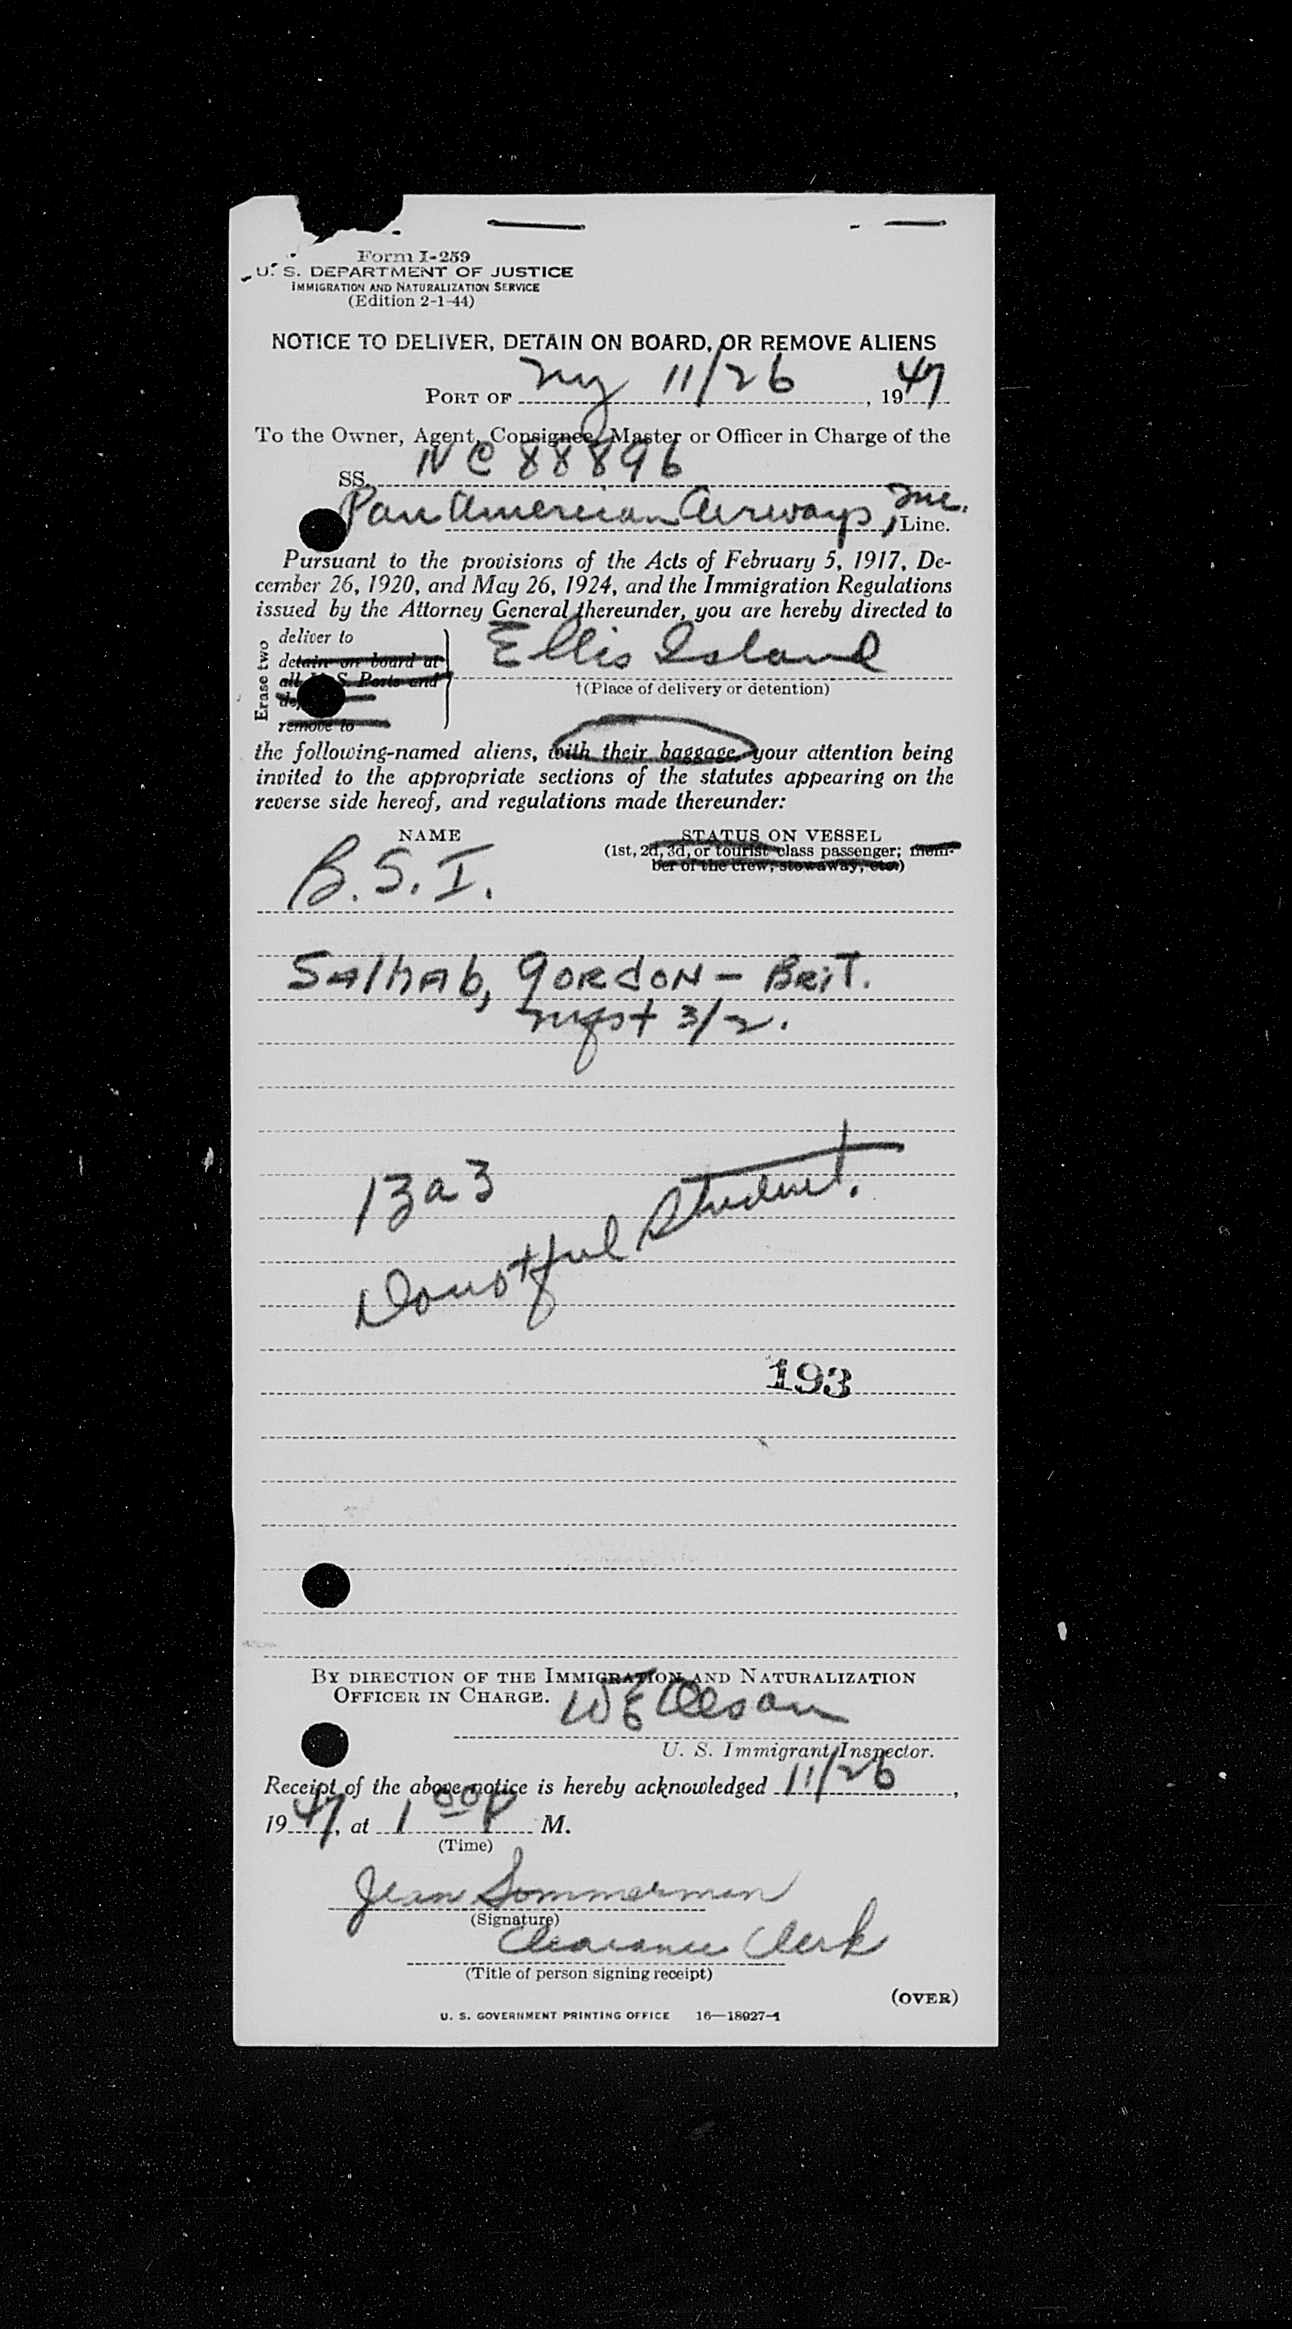 Form I-259
U. S. DEPARTMENT OF JUSTICE
IMMIGRATION AND NATURALIZATION SERVICE
(Edition 2-1-44)
NOTICE TO DELIVER, DETAIN ON BOARD, OR REMOVE ALIENS
PORT OF NY 11/26, 1947
To the Owner, Agent, Consignee, Master or Officer in Charge of the
SS. NC 88896
Pan American Airways, Inc. Line.
Pursuant to the provisions of the Acts of February 5, 1917, De-
cember 26, 1920, and May 26, 1924, and the Immigration Regulations
issued by the Attorney General thereunder, you are hereby directed to
Erase two
deliver to
detain on board at
all U. S. Ports and
remove to
Ellis Island
†(Place of delivery or detention)
the following-named aliens, with their baggage, your attention being
invited to the appropriate sections of the statutes appearing on the
reverse side hereof, and regulations made thereunder:
NAME STATUS ON VESSEL
(1st, 2d, 3d, or tourist class passenger; mem-
ber of the crew, stowaway, etc.)
B.S.I.
Salhab, Gordon - Brit.
mfst 3/2.
13a3
Doubtful Student.
193
BY DIRECTION OF THE IMMIGRATION AND NATURALIZATION
OFFICER IN CHARGE.
U. S. Immigrant Inspector.
Receipt of the above notice is hereby acknowledged 11/26,
1947, at 1 00 P M.
(Time)
Jean Sommerman
(Signature)
Clearance Clerk
(Title of person signing receipt)
(OVER)
U. S. GOVERNMENT PRINTING OFFICE 16—18027-1